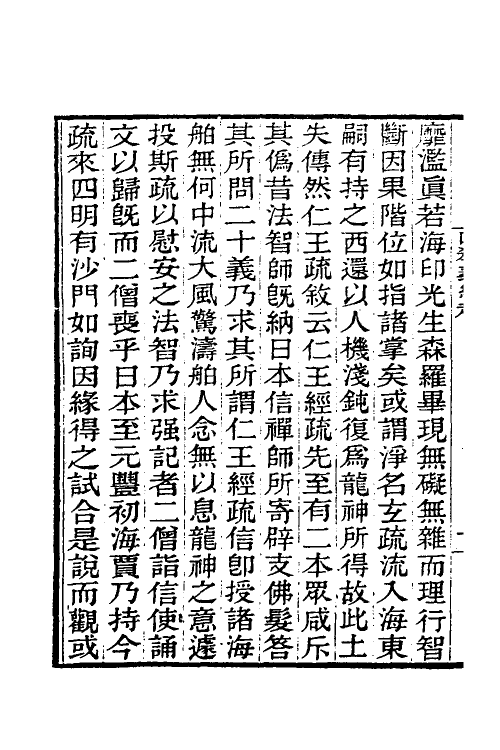 靡濫眞若海印光生森羅畢現無礙無雜而理行智
斷因果階位如指諸掌矣或謂淨名玄疏流入海東
嗣有持之西還以人機淺鈍復爲龍神所得故此土
失傳然仁王疏敘云仁王經疏先至有二本眾咸斥
其僞昔法智師旣納日本信禪師所寄辟支佛髮答
其所問二十義乃求其所謂仁王經疏信卽授諸海
舶無何中流大風驚濤舶人念無以息龍神之意遽
投斯疏以慰安之法智乃求强記者二僧詣信使誦
文以歸旣而二僧喪乎日本至元豐初海賈乃持今
疏來四明有沙門如詢因緣得之試合是說而觀或